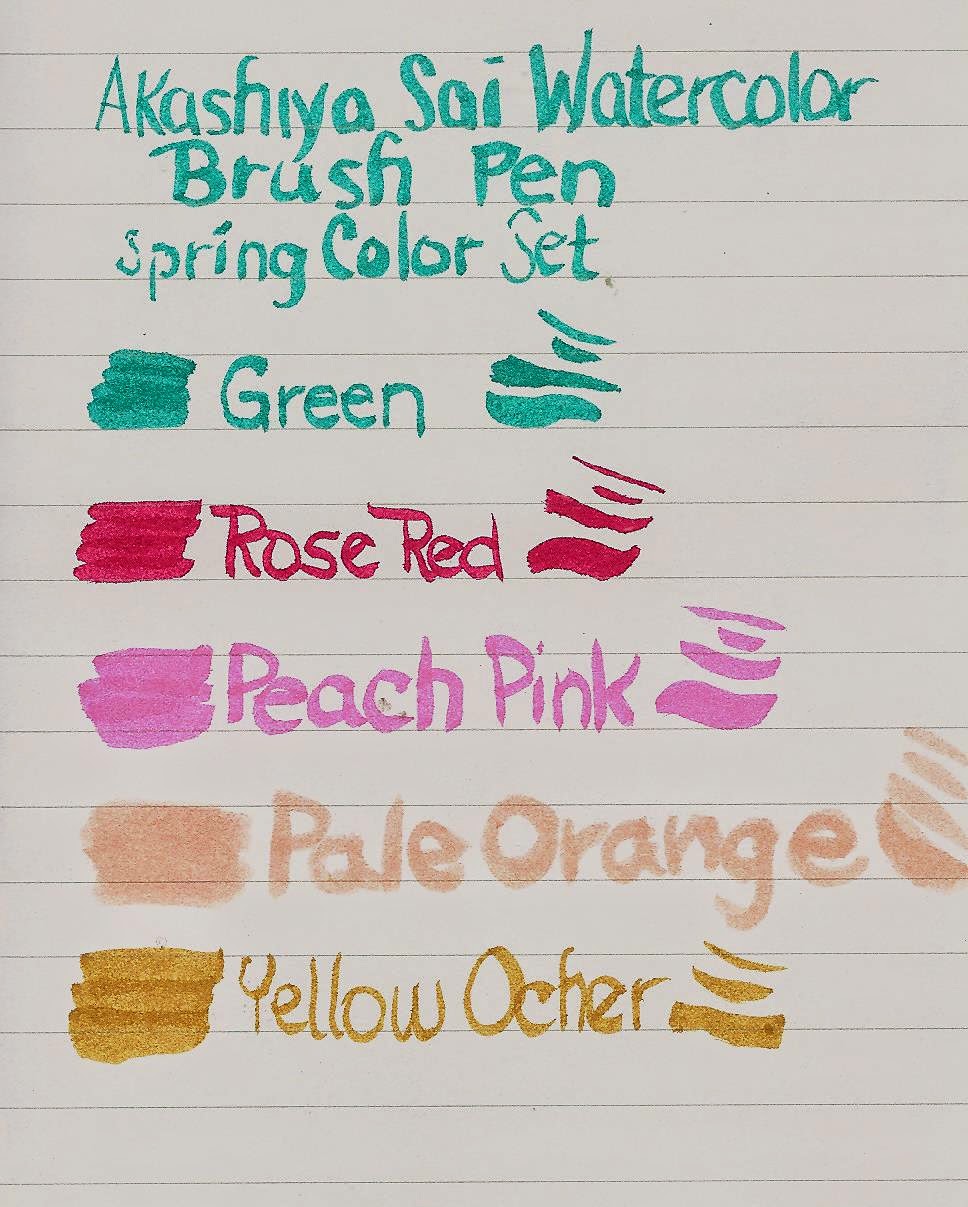 Akashiya Sai Watercolor
Brush Pen
Spring Color Set
Green
Rose Red
Peach Pink
Pale Orange
Yellow Ocher